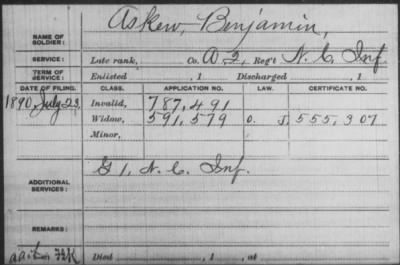 Askew, Benjamin,
NAME OF SOLDIER:
SERVICE: Late rank, Co. A 2, Reg't N. C. Inf.
TERM OF SERVICE: Enlisted , 1 Discharged , 1
DATE OF FILING. CLASS. APPLICATION NO. LAW. CERTIFICATE NO.
1890 July 23, Invalid, 787,491
Widow, 591,579 O. J, 555,307
Minor,
G 1, N. C. Inf.
ADDITIONAL SERVICES:
REMARKS:
Died , 1 , at